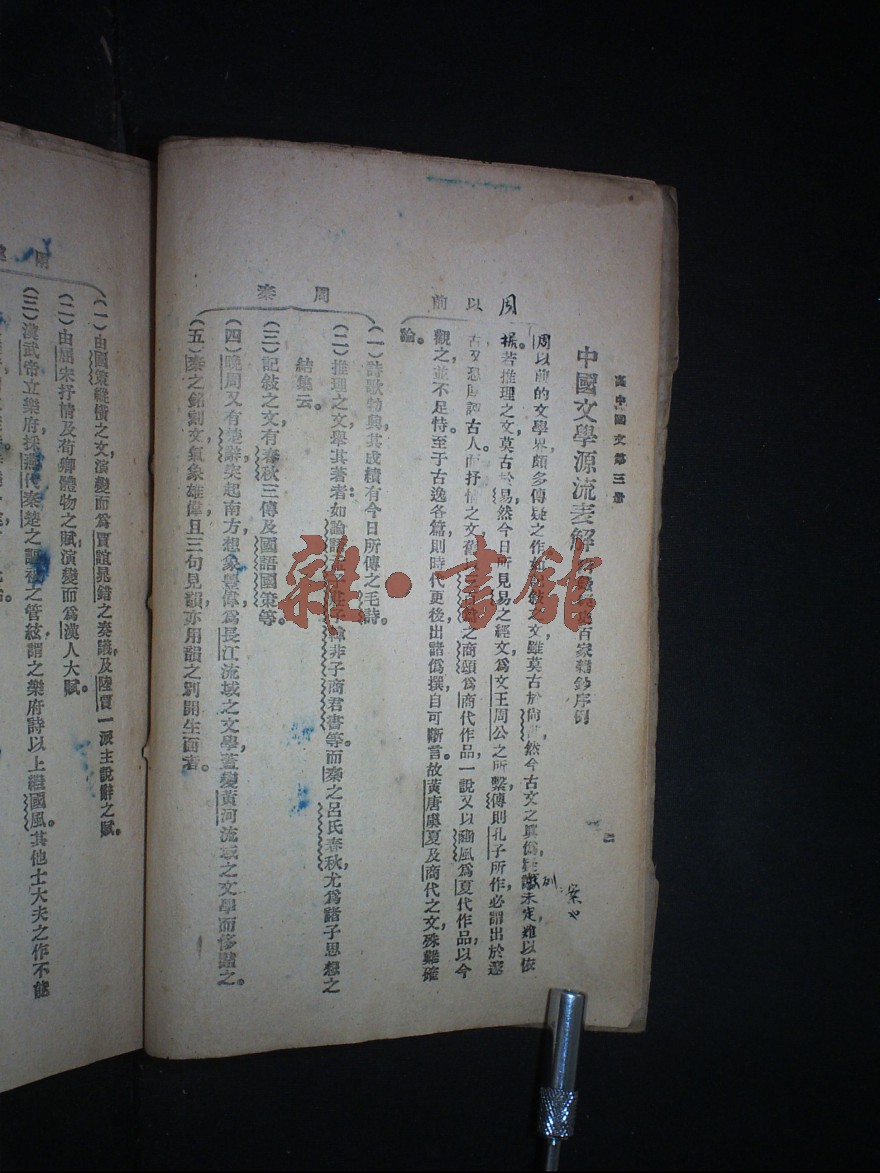 高中國文第三冊
中國文學源流表解 百家雜鈔序例
周以前
周以前的文學界頗多傳疑之作 之文雖莫古於尚 然今古文之眞僞 未定難以依
據若推理之文莫古於易然今日所見易之經文爲文王周公之所繫傳則孔子所作必謂出於邃
古又恐厚誣古人而抒情之文舊 之商頌爲商代作品一說又以豳風爲夏代作品以今
觀之並不足恃至于古逸各篇則時代更後出諸僞撰自可斷言故黃唐虞夏及商代之文殊難確
論。
周秦
(一)詩歌勃興其成績有今日所傳之毛詩。
(二)推理之文學其著者如論語孟子莊子韓非子商君書等。而秦之呂氏春秋尤爲諸子思想之
結集云。
(三)記敍之文有春秋三傳及國語國策等。
(四)晚周又有楚辭突起南方想象豐偉爲長江流域之文學蓋變黃河流域之文學而侈諸之。
(五)秦之銘刻文氣象雄偉且三句見韻亦用韻之別開生面者。
兩
(一)由國策縱橫之文演變而爲賈誼晁錯之奏議及陸賈一派主說辭之賦。
(二)由屈宋抒情及荀卿體物之賦演變而爲漢人大賦。
(三)漢武帝立樂府採燕代秦楚之謳被之管絃謂之樂府詩以上繼國風。其他士大夫之作不能
雜·書館